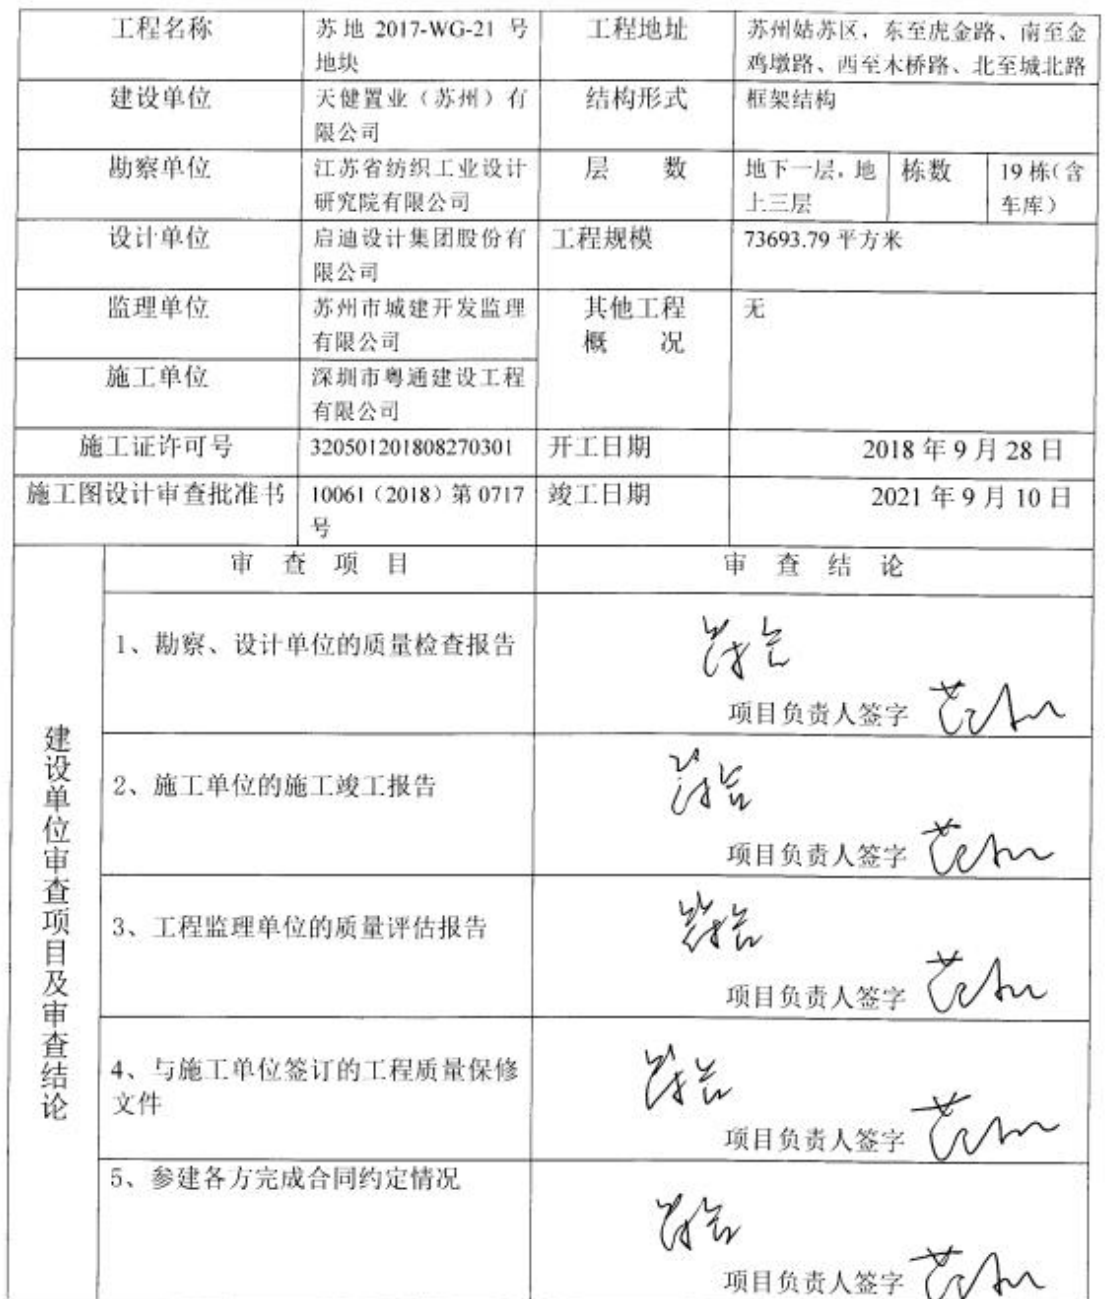 工程名称 苏地 2017-WG-21 号 工程地址 苏州姑苏区，东至虎金路、南至金
地块 鸡墩路、西至木桥路、北至城北路
建设单位 天健置业（苏州）有 结构形式 框架结构
限公司
勘察单位 江苏省纺织工业设计 层 数 地下一层，地 栋数 19 栋（含
研究院有限公司 上三层 车库）
设计单位 启迪设计集团股份有 工程规模 73693.79 平方米
限公司
监理单位 苏州市城建开发监理 其他工程 无
有限公司 概 况
施工单位 深圳市粤通建设工程
有限公司
施工证许可号 320501201808270301 开工日期 2018 年 9 月 28 日
施工图设计审查批准书 10061（2018）第 0717 竣工日期 2021 年 9 月 10 日
号
建设单位审查项目及审查结论
审 查 项 目 审 查 结 论
1、勘察、设计单位的质量检查报告
项目负责人签字
2、施工单位的施工竣工报告
项目负责人签字
3、工程监理单位的质量评估报告
项目负责人签字
4、与施工单位签订的工程质量保修
文件
项目负责人签字
5、参建各方完成合同约定情况
项目负责人签字